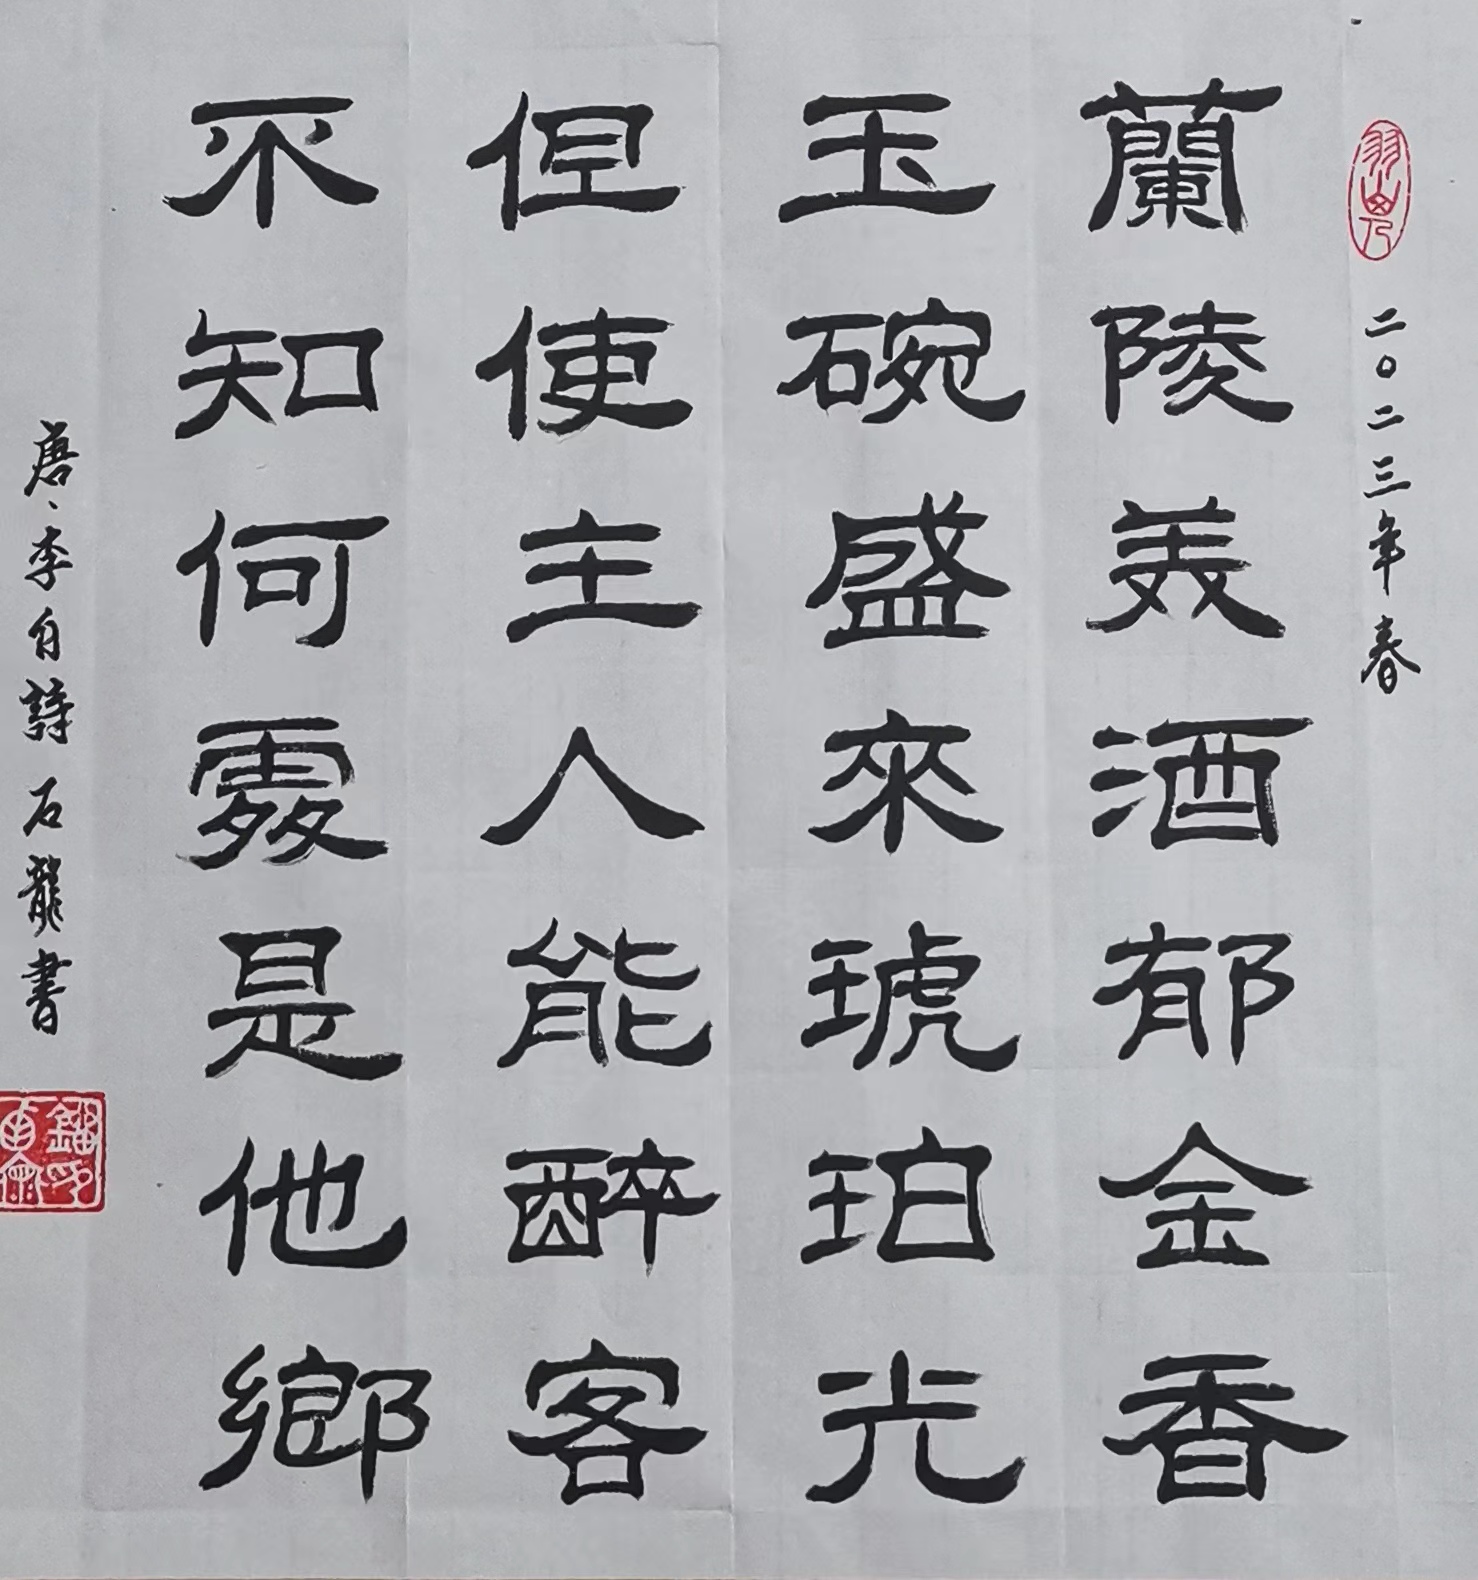 二〇二三年春
蘭陵美酒郁金香
玉碗盛來琥珀光
但使主人能醉客
不知何處是他鄉
唐、李白詩 石龍書